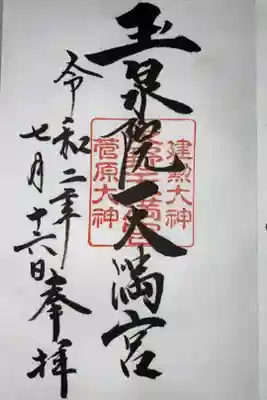 玉泉院天満宮
令和二年
七月十六日奉拝
建勲大神
菅原大神